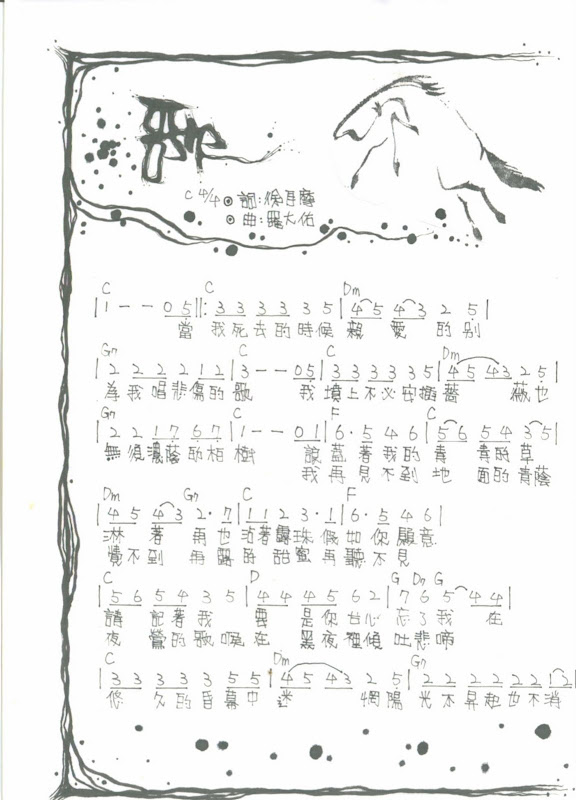 歌
C 4/4 ⊙ 詞:侯自薩
⊙ 曲:羅大佑
C C Dm
|1--05||:333335|454325|
當 我死去的時候 親愛的別
G7 C C Dm
|222212|3--05|333335|454325|
為我唱悲傷的歌 我墳上不必安插薔薇也
G7 C F C
|221767|1--01|6·546|565435|
無須濃蔭的柏樹 讓蓋著我的青青的草
我再見不到地面的青蔭
Dm G7 C F
|45432·7|1123·1|6·546|
淋著雨也沾著露珠 假如你願意
覺不到再露的甜蜜 再聽不見
C D G Dm G
|565435|444562|76544|
請記著我 要是你甘心忘了我 在
夜鶯的歌喉在 黑夜裡傾吐悲啼
C Dm G7
|333355|454325|22222212|
悠久的昏幕中迷惘 陽光不昇起也不消